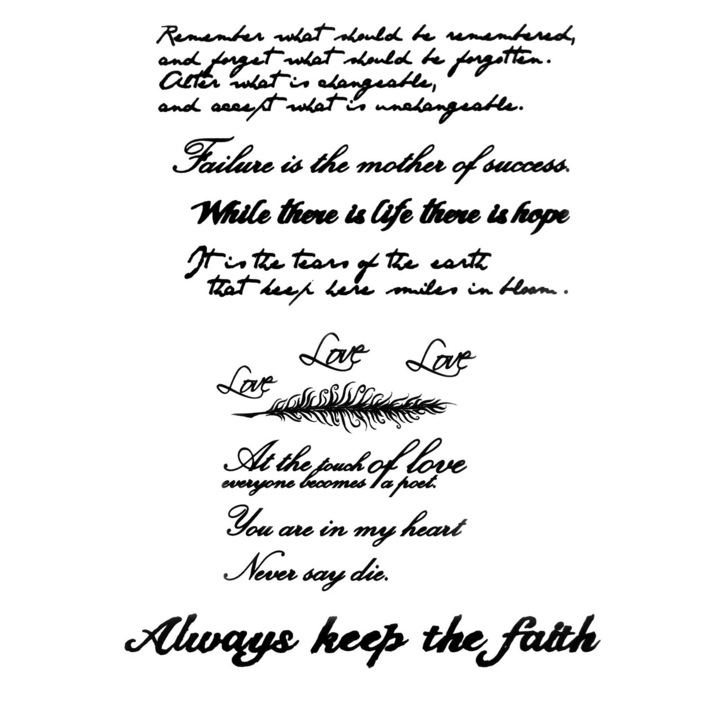 Remember what should be remembered,
and forget what should be forgotten.
Alter what is changeable,
and accept what is unchangeable.
Failure is the mother of success.
While there is life there is hope
It is the tears of the earth
that keep here smiles in bloom.
Love
Love
Love
At the touch of love
everyone becomes a poet.
You are in my heart
Never say die.
Always keep the faith